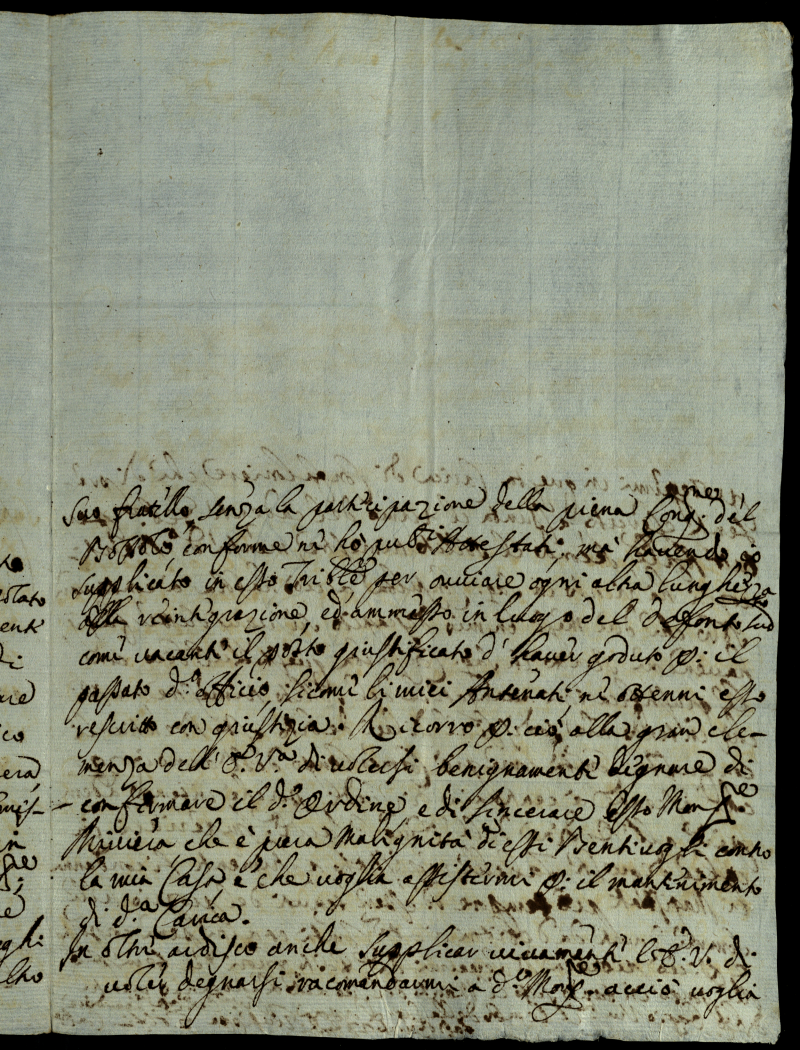 suo fratello, senza la participazione della piena Cong.ne del
Popolo conforme ne hò pub.i Attestati, mà havendo io
supplicato in esso Trib.le per ouuiare ogni altra lunghezza
alla reintegrazione, ed ammesso in luogo del defonto sud.o
come uacante il posto giustificato d'hauer goduto p. il
passato d.o Officio, sicome li miei Antenati, ne ottenni esso
rescritto con giustizia. Ricorro p. ciò alla gran cle-
menza dell' E. V.a di uolersi benignamente dignare di
confermare il d.o Ordine, e di sincerare esso Mons.re
Riuiera che è pura Malignità di essi Bentiuogli contro
la mia Casa e che uoglia assistermi p. il mantenimento
di d.a Carica.
In oltre ardisco anche supplicar uiuamente l'E. V. di
uoler degnarsi racomandarmi a d.o Mons.re acciò uoglia
to
olato
ente
di
are
ico
erà
in
re
e
gli
ltro